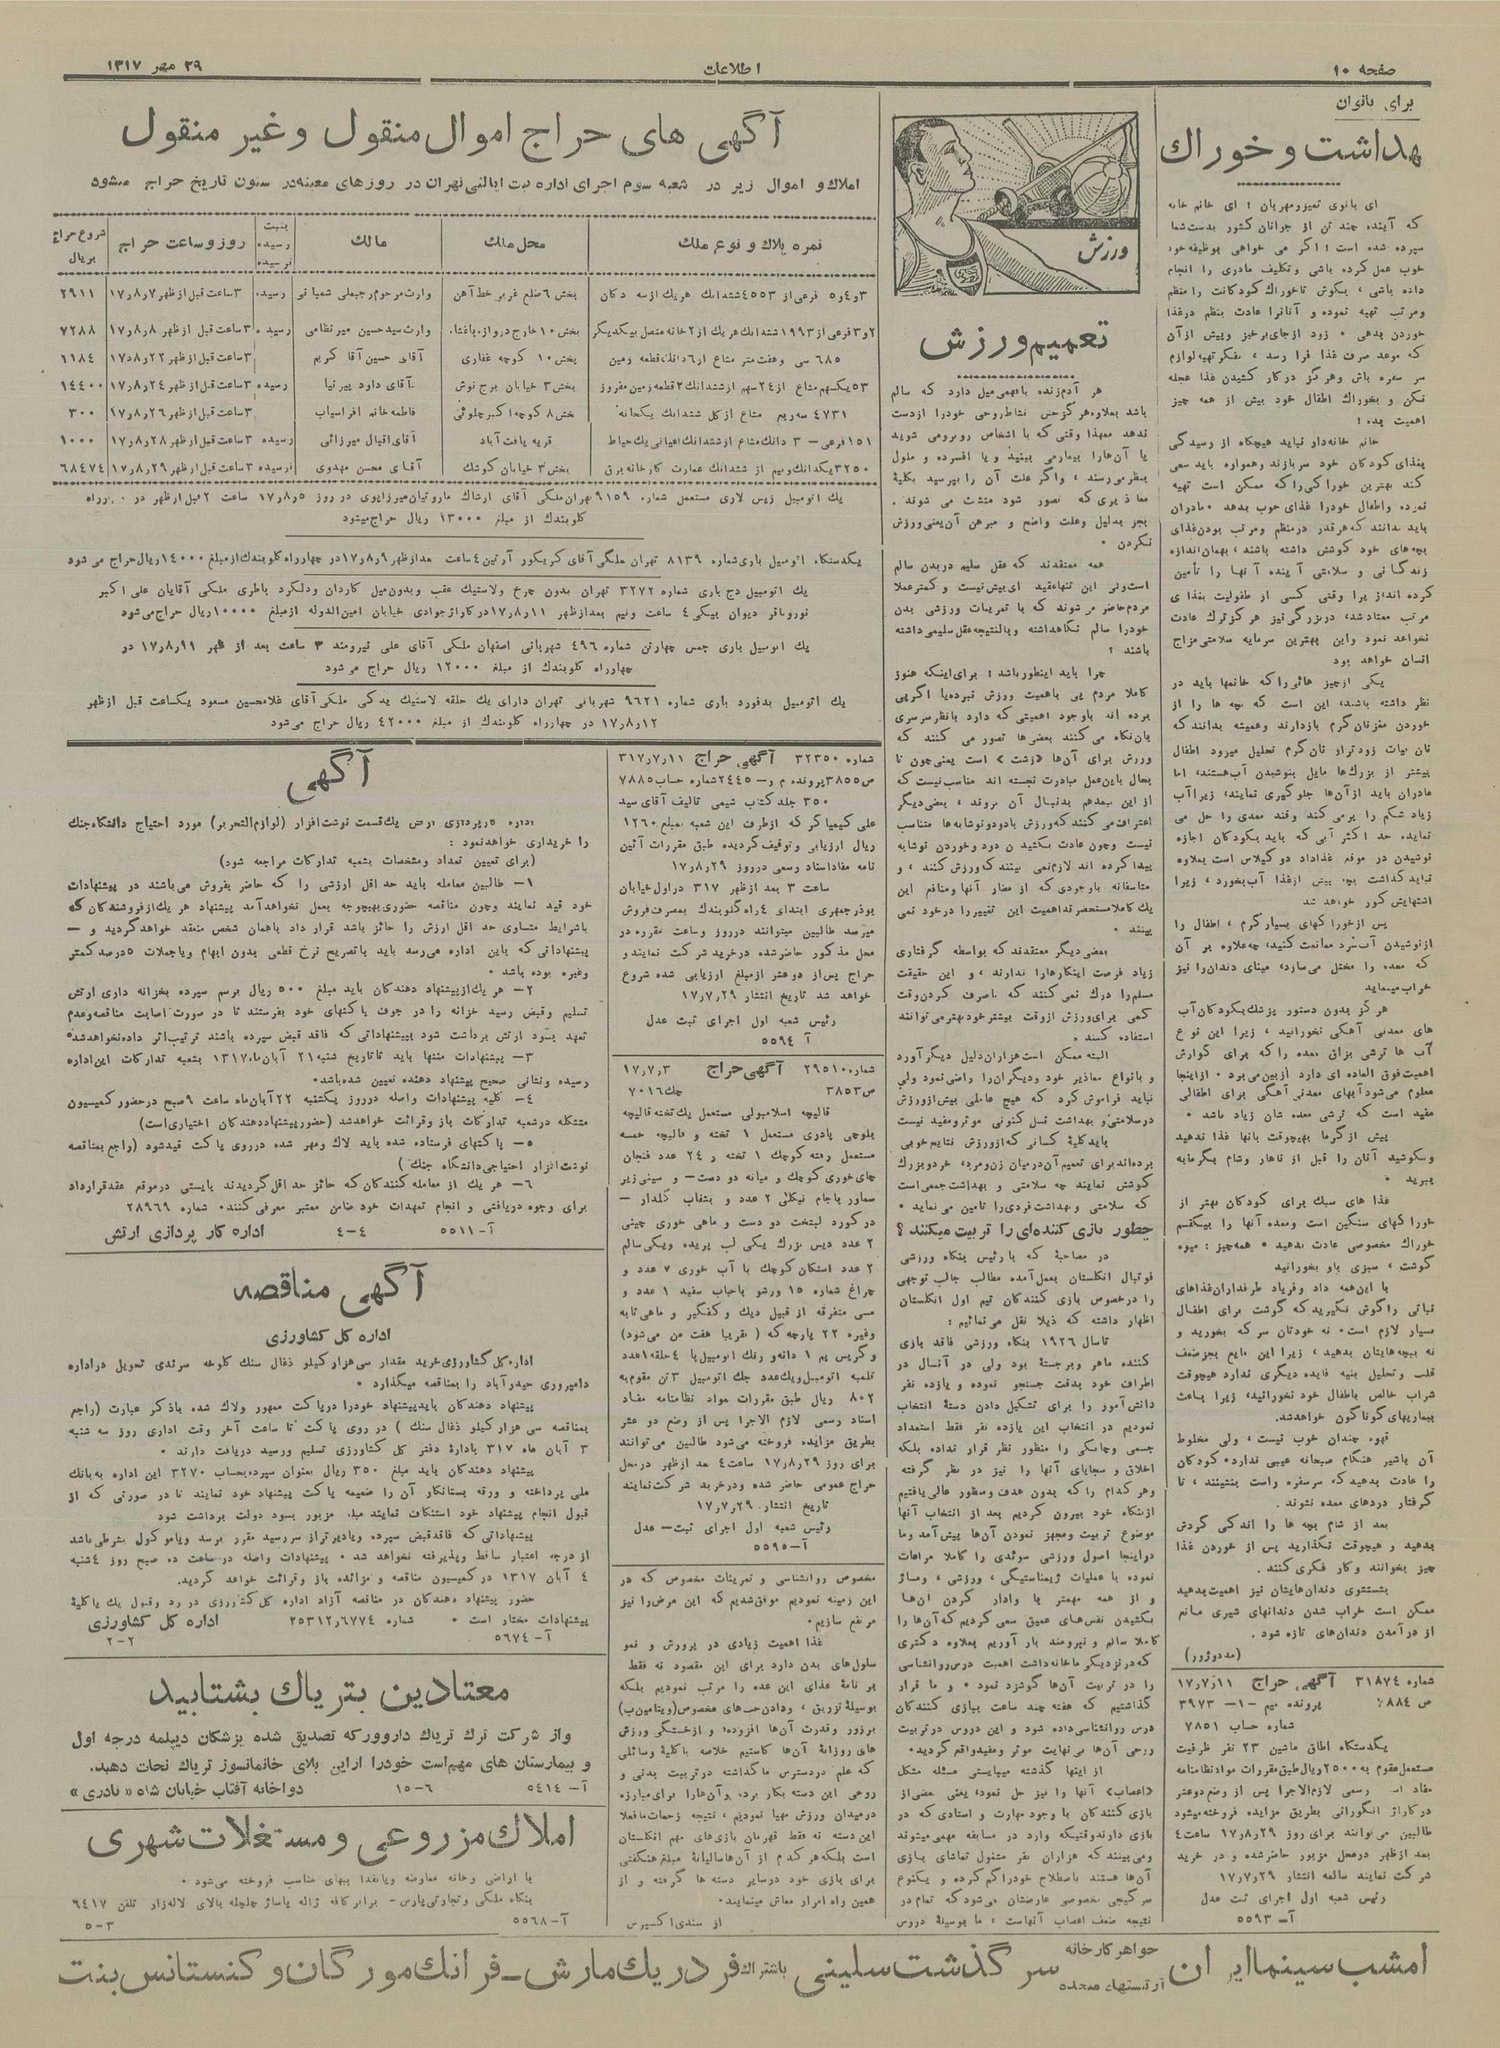 صفحه ۱۰
اطلاعات
۲۹ مهر ۱۳۱۷
برای بانوان
بهداشت و خوراك
ای بانوی تمیز و مهربان ! ای خانم خانه
که آینده چند تن از جوانان کشور بدست شما
سپرده شده است ! اگر می خواهی بوظیفه خود
خوب عمل کرده باشی و تکلیف مادری را انجام
داده باشی ، بکوش تا خوراك کودکانت را منظم
و مرتب تهیه نموده و آنانرا عادت بنظم در غذا
خوردن بدهی . زود از جای برخیز و پیش از آن
که موعد صرف غذا فرا رسد ، بفکر تهیه لوازم
سر سفره باش و هرگز در کار کشیدن غذا عجله
نکن و بخوراك اطفال خود بیش از همه چیز
اهمیت بده !
خانم خانه‌دار نباید هیچگاه از رسیدگی
بغذای کودکان خود سرباز زند و همواره باید سعی
کند بهترین خوراکی را که ممکن است تهیه
نموده و اطفال خود را غذای خوب بدهد . مادران
باید بدانند که هر قدر در منظم و مرتب بودن غذای
بچه‌های خود کوشش داشته باشند ، بهمان اندازه
زندگانی و سلامتی آینده آنها را تأمین
کرده اند ، زیرا وقتی کسی از طفولیت بغذای
مرتب معتاد شد ، در بزرگی نیز هرگز ترك عادت
نخواهد نمود و این بهترین سرمایه سلامتی مزاج
انسان خواهد بود
یکی از چیز هائی را که خانمها باید در
نظر داشته باشند ، این است که بچه ها را از
خوردن مغز نان گرم بازدارند و همیشه بدانند که
نان بیات زودتر از نان گرم تحلیل میرود اطفال
بیشتر از بزرك‌ها مایل بنوشیدن آب هستند ، اما
مادران باید از آن‌ها جلوگیری نمایند ، زیرا آب
زیاد شکم را پر می کند و قند معدی را حل می
نماید . حد اکثر آبی که باید بکودکان اجازه
نوشیدن در موقع غذا داد دو گیلاس است بعلاوه
نباید گذاشت بچه پیش از غذا آب بخورد ، زیرا
اشتهایش کور خواهد شد
پس از خوراکهای بسیار گرم ، اطفال را
از نوشیدن آب سرد ممانعت کنید ، چه علاوه بر آن
که معده را مختل می‌سازد ، مینای دندان را نیز
خراب مینماید
هرگز بدون دستور پزشك بکودکان آب
های معدنی آهکی نخورانید ، زیرا این نوع
آب ها ترشی بزاق معده را که برای گوارش
اهمیت فوق العاده ای دارد از بین می‌برد . از اینجا
معلوم می‌شود آبهای معدنی آهکی برای اطفالی
مفید است که ترشی معده شان زیاد باشد .
پیش از گرما بهیچوقت بانها غذا ندهید
و بکوشید آنان را قبل از ناهار و شام بگرمابه
ببرید .
غذا های سبك برای کودکان بهتر از
خوراکهای سنگین است و معده آنها را بیکقسم
خوراك مخصوصی عادت ندهید . همه چیز : میوه
گوشت ، سبزی باو بخورانید
با این همه داد و فریاد طرفداران غذاهای
نباتی را گوش نگیرید که گوشت برای اطفال
بسیار لازم است . نه خودتان سرکه بخورید و
نه ببچه‌هایتان بدهید ، زیرا این مایع بجز ضعف
قلب و تحلیل بنیه فایده دیگری ندارد هیچوقت
شراب خالص باطفال خود نخورانید ، زیرا باعث
بیماریهای گوناگون خواهد شد .
قهوه چندان خوب نیست ، ولی مخلوط
آن باشیر هنگام صبحانه عیبی ندارد . کودکان
را عادت بدهید که سر سفره راست بنشینند ، تا
گرفتار دردهای معده نشوند .
بعد از شام بچه ها را اندکی گردش
بدهید و هیچوقت نگذارید پس از خوردن غذا
چیز بخوانند و کار فکری کنند .
بشستشوی دندان‌هایتان نیز اهمیت بدهید
ممکن است خراب شدن دندانهای شیری مانع
از در آمدن دندان‌های تازه شود .
شماره ۳۱۸۷۴ آگهی حراج ۱۷ر۷ر۱۱
پرونده میم -۱- ۳۹۷۳
شماره حساب ۷۸۵۱
یکدستگاه اطاق ماشین ۲۳ نفر ظرفیت
مستعمل مقوم به ۲۵۰۰۰ ریال طبق مقررات مواد نظامنامه
رسمی لازم الاجرا پس از وضع دو عشر
در گاراژ انگورانی بطریق مزایده فروخته میشود
طالبین می‌توانند برای روز ۱۷ر۸ر۲۹ ساعت ۴
بعد از ظهر در محل مزبور حاضر شده و در خرید
شرکت نمایند انتشار ۱۷ر۷ر۲۹
رئیس شعبه اول اجرای ثبت عدل
آ- ۵۵۹۳
ورزش
تعمیم ورزش
هر آدم زنده بافهمی میل دارد که سالم
باشد بعلاوه هرگز حس نشاط روحی خود را از دست
ندهد معهذا وقتی که با اشخاص روبرو می شوید
یا آن‌ها را بیمار می بینید و یا افسرده و ملول
بنظر می‌رسند ، و اگر علت آن را بپرسید بکلیه
معاذیری که تصور شود متشبث می شوند .
بجز بدلیل و علت واضح و مبرهن آن یعنی ورزش
نکردن .
همه معتقدند که عقل سلیم در بدن سالم
است ولی این تنها عقیده ای بیش نیست و کمتر عملا
مردم حاضر می شوند که با تمرینات ورزشی بدن
خود را سالم نگاهداشته و بالنتیجه عقل سلیمی داشته
باشند ؟
چرا باید اینطور باشد ؟ برای اینکه هنوز
کاملا مردم پی باهمیت ورزش نبرده یا اگر پی
برده اند باوجود اهمیتی که دارد با نظر سرسری
بان نگاه می کنند بعضی‌ها تصور می کنند که
ورزش برای آن‌ها «زشت» است یعنی چون تا
بحال باین عمل مبادرت نجسته اند مناسب نیست که
از این ببعد هم بدنبال آن بروند ، بعضی دیگر
اعتراف می کنند که ورزش با دود و نوشابه‌ها متناسب
نیست و چون عادت بکشیدن دود و خوردن نوشابه
پیدا کرده اند لازم نمی بینند که ورزش کنند ، و
متاسفانه با وجودی که از مضار آنها و منافع این
یك کاملا مستحضرند اهمیت این تغییر را در خود نمی
بینند .
بعضی دیگر معتقدند که بواسطه گرفتاری
زیاد فرصت اینکارها را ندارند ، و این حقیقت
مسلم را درك نمی کنند که با صرف کردن وقت
کمی برای ورزش از وقت بیشتر خود بهتر می توانند
استفاده کنند .
البته ممکن است هزاران دلیل دیگر آورد
و بانواع معاذیر خود و دیگران را راضی نمود ولی
نباید فراموش کرد که هیچ عاملی بیش از ورزش
در سلامتی و بهداشت نسل کنونی موثر و مفید نیست
باید کلیه کسانی که از ورزش نتایج خوبی
برده‌اند برای تعمیم آن در میان زن و مرد ، خرد و بزرك
کوشش نمایند چه سلامتی و بهداشت جمعی است
که سلامتی و بهداشت فردی را تامین می نماید .
چطور بازی کننده‌ای را تربیت میکنند ؟
در مصاحبه که با رئیس بنگاه ورزشی
فوتبال انگلستان بعمل آمده مطالب جالب توجهی
را در خصوص بازی کنندگان تیم اول انگلستان
اظهار داشته که ذیلا نقل می نمائیم :
تا سال ۱۹۲۶ بنگاه ورزشی فاقد بازی
کننده ماهر و برجسته بود ولی در آنسال در
اطراف خود بدقت جستجو نموده و یازده نفر
دانش‌آموز را برای تشکیل دادن دستهٔ انتخاب
نمودیم در انتخاب این یازده نفر فقط استعداد
جسمی و چابکی را منظور نظر قرار نداده بلکه
اخلاق و سجایای آنها را نیز در نظر گرفته
و هر کدام را که بدون هدف و منظور عالی یافتیم
از بنگاه خود بیرون کردیم بعد از انتخاب آنها
موضوع تربیت و مجهز نمودن آن‌ها پیش آمد و ما
در اینجا اصول ورزشی سوئدی را کاملا مراعات
نموده با عملیات ژیمناستیگی ، ورزشی ، و ماساژ
و از همه مهمتر با وادار کردن آن‌ها
بکشیدن نفس‌های عمیق سعی کردیم که آن‌ها را
کاملا سالم و نیرومند بار آوریم بعلاوه دکتری
که در نزدیکی ما خانه داشت اهمیت درس روانشناسی
را در تربیت آن‌ها گوشزد نمود . و ما قرار
گذاشتیم که هفته چند ساعت ببازی کنندگان
درس روانشناسی داده شود و این دروس در تربیت
روحی آن‌ها بی‌نهایت موثر و مفید واقع گردید .
از اینها گذشته میبایستی مسئله مشکل
«اعصاب» آنها را نیز حل نمود ، یعنی بعضی از
بازی کنندگان با وجود مهارت و استادی که در
بازی دارند وقتیکه وارد در مسابقه مهمی میشوند
و می‌بینند که هزاران نفر مشغول تماشای بازی
آن‌ها هستند باصطلاح خود را گم کرده و یکنوع
سرگیجی مخصوصی عارضشان می‌شود که تمام در
نتیجه ضعف اعصاب آنهاست ، ما بوسیلهٔ دروس
مخصوص روانشناسی و تمرینات مخصوص که در
این زمینه نمودیم موفق شدیم که این مرض را نیز
مرتفع سازیم .
غذا اهمیت زیادی در پرورش و نمو
سلول‌های بدن دارد برای این مقصود نه فقط
برنامهٔ غذای این عده را مرتب نمودیم بلکه
بوسیلهٔ تزریق ، و دادن حب‌های مخصوص (ویتامین ب)
بر زور و قدرت آن‌ها افزوده ، و از خستگی ورزش
های روزانهٔ آن‌ها کاستیم خلاصه با کلیهٔ وسائلی
که علم در دسترس ما گذاشته در تربیت بدنی و
روحی این دسته بکار برد ، و آن‌ها را برای مبارزه
در میدان ورزش مهیا نمودیم ، نتیجه زحمات ما فعلا
این دسته نه فقط قهرمان بازی‌های مهم انگلستان
است بلکه هر کدام از آن‌ها سالیانهٔ مبلغ هنگفتی
برای بازی خود در سایر دسته ها گرفته و از
همین راه امرار معاش مینمایند .
از سندی اکسپرس
آگهی های حراج اموال منقول و غیر منقول
املاك و اموال زیر در شعبه سوم اجرای اداره ثبت ایالتی تهران در روزهای معینه در ستون تاریخ حراج میشود
نمره پلاك و نوع ملك | محل ملك | مالك | روز و ساعت حراج | بثبت رسیده نرسیده | شروع حراج بریال
۳ و ۴ و ۵ فرعی از ۴۵۵۳ ششدانك هر یك از سه دکان | بخش ۶ ضلع غربی خط آهن | وارث مرحوم رجبعلی شعبانی | ۳ ساعت قبل از ظهر ۱۷ر۸ر۷ | رسیده | ۲۹۱۱
۲ و ۳ فرعی از ۱۹۹۳ ششدانك هر یك از ۲ خانه متصل بیکدیگر | بخش ۱۰ خارج دروازه باغشاه | وارث سید حسین میرنظامی | ۳ ساعت قبل از ظهر ۱۷ر۸ر۸ | رسیده | ۷۲۸۸
۶۸۵ سی و هفت متر مشاع از ۶ دانك قطعه زمین | بخش ۱۰ کوچه غفاری | آقای حسین آقا کریم | ۳ ساعت قبل از ظهر ۱۷ر۸ر۲۲ | | ۱۱۸۴
۵۳ یکسهم مشاع از ۲۴ سهم از ششدانك ۲ قطعه زمین مفروز | بخش ۳ خیابان برج نوش | آقای داود پیرنیا | ۳ ساعت قبل از ظهر ۱۷ر۸ر۲۴ | رسیده | ۱۴۴۰۰
۴۷۳۱ سه ربع مشاع از کل ششدانك یکخانه | بخش ۸ کوچه اکبر چلوئی | فاطمه خانم افراسیاب | ۳ ساعت قبل از ظهر ۱۷ر۸ر۲۶ | | ۳۰۰
۱۵۱ فرعی - ۳ دانك مشاع از ششدانك اعیانی یك حیاط | قریه یافت آباد | آقای اقبال میرزائی | ۳ ساعت قبل از ظهر ۱۷ر۸ر۲۸ | رسیده | ۱۰۰۰
۳۲۵۰ یکدانك و نیم از ششدانك عمارت کارخانه برق | بخش ۳ خیابان کوشك | آقای محسن مهدوی | ۳ ساعت قبل از ظهر ۱۷ر۸ر۲۹ | نرسیده | ۶۸۴۷۴
یك اتومبیل زیس لاری مستعمل شماره ۹۱۵۹ تهران ملکی آقای ارشاك ماروتیان میرزایوی در روز ۱۷ر۸ر۵ ساعت ۲ قبل از ظهر در
گلوبندك از مبلغ ۱۳۰۰۰ ریال حراج میشود
یکدستگاه اتومبیل باری شماره ۸۱۳۹ تهران ملکی آقای کریکور آرتین ۴ ساعت بعد از ظهر ۱۷ر۸ر۹ در چهار راه گلوبندك از مبلغ ۱۴۰۰۰ ریال حراج می شود
یك اتومبیل دج باری شماره ۳۲۷۲ تهران بدون چرخ ولاستیك عقب و بدون میل کاردان و دلکو و باطری ملکی آقایان علی اکبر
نوروباقر دیوان بیگی ۴ ساعت و نیم بعد از ظهر ۱۷ر۸ر۱۱ در گاراژ جوادی خیابان امین الدوله از مبلغ ۱۰۰۰۰ ریال حراج می‌شود
یك اتومبیل باری جمس چهارتن شماره ۴۹۶ شهربانی اصفهان ملکی آقای علی نیرومند ۳ ساعت بعد از ظهر در
چهارراه گلوبندك از مبلغ ۱۲۰۰۰ ریال حراج می شود
یك اتومبیل بدفورد باری شماره ۹۶۲۱ شهربانی تهران دارای یك حلقه لاستیك یدکی ملکی آقای غلامحسین مسعود یکساعت قبل از ظهر
۱۷ر۸ر۱۲ در چهارراه گلوبندك از مبلغ ۴۲۰۰۰ ریال حراج می‌شود
شماره ۳۲۳۵۰ آگهی حراج ۳۱۷ر۷ر۱۱
ص ۳۸۵۵ پرونده م ر - ۲۴۴۵ شماره حساب ۷۸۸۵
۳۵۰ جلد کتاب شیمی تالیف آقای سید
علی کیمیاگر که از طرف این شعبه بمبلغ ۱۲۶۰
ریال ارزیابی و توقیف گردیده طبق مقررات آئین
نامه مفاد اسناد رسمی در روز ۱۷ر۸ر۲۹
ساعت ۳ بعد از ظهر ۳۱۷ در اول خیابان
بوذرجمهری ابتدای ۴ راه گلوبندك بمصرف فروش
میرسد طالبین میتوانند در روز و ساعت مقرره در
محل مذکور حاضر شده در خرید شرکت نمایند و
حراج پس از دو عشر از مبلغ ارزیابی شده شروع
خواهد شد تاریخ انتشار ۱۷ر۷ر۲۹
رئیس شعبه اول اجرای ثبت عدل
آ ۵۵۹۴
شماره ۲۹۵۱۰ آگهی حراج ۱۷ر۷ر۳
ص ۳۸۵۳ چك ۷۰۱۶
قالیچه اسلامبولی مستعمل یك تخته قالیچه
بلوچی پادری مستعمل ۱ تخته و قالیچه خمسه
مستعمل رفته کوچك ۱ تخته و ۲۴ عدد فنجان
چای خوری کوچك و میانه دو دست - و سینی زیر
سماور با جام نیکلی ۲ عدد و بشقاب گلدار -
در گود لبتخت دو دست و ماهی خوری چینی
۲ عدد دیس بزرك یکی لب پریده و یکی سالم
۲ عدد استکان کوچك با آب خوری ۷ عدد و
چراغ شماره ۱۵ ورشو با حباب سفید ۱ عدد و
مسی متفرقه از قبیل دیك و کفگیر و ماهی تابه
وغیره ۲۲ پارچه که ( تقریبا هفت من می‌شود)
تلمبه اتومبیل و یك عدد جك اتومبیل ۳ تن مقوم به
۸۰۲ ریال طبق مقررات مواد نظامنامه مفاد
اسناد رسمی لازم الاجرا پس از وضع دو عشر
بطریق مزایده فروخته می‌شود طالبین می‌توانند
برای روز ۱۷ر۸ر۲۹ ساعت ۴ بعد از ظهر در محل
حراج عمومی حاضر شده و در خرید شرکت نمایند
تاریخ انتشار ۱۷ر۷ر۲۹
رئیس شعبه اول اجرای ثبت - عدل
آ - ۵۵۹۵
آگهی
اداره کارپردازی ارتش یك قسمت نوشت افزار (لوازم التحریر) مورد احتیاج دانشگاه جنك
را خریداری خواهد نمود :
(برای تعیین تعداد و مشخصات بشعبه تدارکات مراجعه شود)
۱- طالبین معامله باید حد اقل ارزشی را که حاضر بفروش می‌باشند در پیشنهادات
خود قید نمایند و چون مناقصه حضوری بهیچوجه بعمل نخواهد آمد پیشنهاد هر یك از فروشندگان که
باشرایط متساوی حد اقل ارزش را حائز باشد قرار داد باهمان شخص منعقد خواهد گردید و -
پیشنهاداتی که باین اداره می‌رسد باید باتصریح نرخ قطعی بدون ابهام و یا جملات ۵ درصد کمتر
وغیره بوده باشد .
۲- هر یك از پیشنهاد دهندگان باید مبلغ ۵۰۰ ریال برسم سپرده بخزانه داری ارتش
تسلیم و قبض رسید خزانه را در جوف پاکتهای خود بفرستند تا در صورت اصابت مناقصه و عدم
تعهد بسود ارتش برداشت شود بپیشنهاداتی که فاقد قبض سپرده باشند ترتیب اثر داده نخواهد شد .
۳- پیشنهادات منتها باید تا تاریخ شنبه ۲۱ آبان ماه ۱۳۱۷ بشعبه تدارکات این اداره
رسیده و نشانی صحیح پیشنهاد دهنده تعیین شده باشد .
۴- کلیه پیشنهادات واصله در روز یکشنبه ۲۲ آبان ماه ساعت ۹ صبح در حضور کمیسیون
متشکله در شعبه تدارکات باز و قرائت خواهد شد (حضور پیشنهاد دهندگان اختیاری است)
۵- پاکتهای فرستاده شده باید لاك و مهر شده در روی پاکت قید شود (راجع بمناقصه
نوشت افزار احتیاجی دانشگاه جنك )
۶- هر یك از معامله کنندگان که حائز حد اقل گردیدند بایستی در موقع عقد قرارداد
برای وجوه دریافتی و انجام تعهدات خود ضامن معتبر معرفی کنند . شماره ۲۸۹۶۹
آ- ۵۵۱۱ ۴-۴ اداره کار پردازی ارتش
آگهی مناقصه
اداره کل کشاورزی
اداره کل کشاورزی خرید مقدار سی هزار کیلو ذغال سنك کلوخه سرندی تحویل در اداره
دامپروری حیدرآباد را بمناقصه میگذارد .
پیشنهاد دهندگان باید پیشنهاد خود را در پاکت ممهور و لاك شده با ذکر عبارت (راجع
بمناقصه سی هزار کیلو ذغال سنك ) در روی پاکت تا ساعت آخر وقت اداری روز سه شنبه
۳ آبان ماه ۳۱۷ بادارهٔ دفتر کل کشاورزی تسلیم و رسید دریافت دارند .
پیشنهاد دهندگان باید مبلغ ۳۵۰ ریال بعنوان سپرده بحساب ۳۲۷۰ این اداره به بانك
ملی پرداخته و ورقه بستانکار آن را ضمیمه پاکت پیشنهاد خود نمایند تا در صورتی که از
قبول انجام پیشنهاد خود استنکاف نمایند مبلغ مزبور بسود دولت برداشت شود
پیشنهاداتی که فاقد قبض سپرده و یا دیرتر از سررسید مقرر برسد و یا موکول بشرطی باشد
از درجه اعتبار ساقط و پذیرفته نخواهد شد . پیشنهادات واصله در ساعت ده صبح روز ۴ شنبه
۴ آبان ۱۳۱۷ در کمیسیون مناقصه و مزائده باز و قرائت خواهد گردید .
حضور پیشنهاد دهندگان در مناقصه آزاد اداره کل کشاورزی در رد و قبول یك یا کلیهٔ
پیشنهادات مختار است . شماره ۲۵۳۱۲ر۶۷۷۴ اداره کل کشاورزی
آ- ۵۶۷۴ ۲-۲
معتادین بتریاك بشتابید
واز شرکت ترك تریاك داروور که تصدیق شده پزشکان دیپلمه درجه اول
و بیمارستان های مهم است خود را از این بلای خانمانسوز تریاك نجات دهید .
آ- ۵۴۱۴ ۶-۱۵ دواخانه آفتاب خیابان شاه «نادری»
املاك مزروعی و مستغلات شهری
با اراضی و خانه معاوضه و یا نقدا ببهای مناسب فروخته می‌شود .
بنگاه ملکی و تجارتی پارس - برابر کافه ژاله پاساژ چلچله بالای لاله‌زار تلفن ۶۴۱۷
آ- ۵۵۶۸ ۳-۵
امشب سینما ایران جواهر کارخانه آرتیستهای متحده سرگذشت سلینی باشتراك فردریك مارش - فرانك مورگان و کنستانس بنت